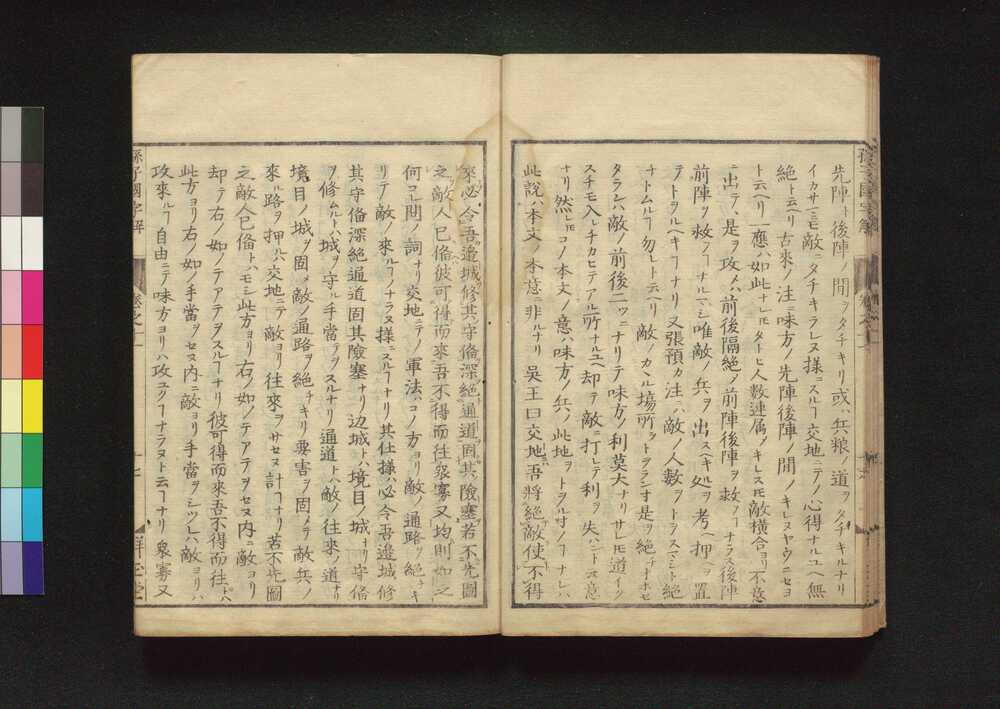 先陣ト後陣ノ間ヲタチキリ或ハ兵粮ノ道ヲタチキルナリ
イカサマニモ敵ニタチキラレヌ様ニスルヿ交地ニテノ心得ナルユヘ無
絶ト云ヘリ古來ノ注ニ味方ノ先陣後陣ノ間ノキレヌヤウニセヨ
ト云ヘリ一應ハ如此ナレ𪜈タトヒ人数連属メキレス𪜈敵横合ヨリ不意
ニ出テ是ヲ攻ハ前後隔絶メ前陣後陣ヲ救フヿナラス後陣
前陣ヲ救フヿナルマシ唯敵ノ兵ヲ出スヘキ処ヲ考ヘ押ヘヲ置
テトヲルヘキヿナリ又張預カ注ハ敵ノ人数ヲトヲスマシト絶
チトムルヿ勿レト云ヘリ敵ノカヽル場所ヲトヲラン寸是ヲ絶
タラハ敵ノ前後二ツニナリテ味方ノ利莫大ナリサレ𪜈道イツ
スチモ入レチカヒテアル所ナルユヘ却テ敵ニ打レテ利ヲ失ハントス意
ナリ然レ𪜈コノ本文ノ意ハ味方ノ兵ノ此地ヲトヲル寸ノヿナレハ
此説ハ本文ノ本意ニ非ルナリ吳王曰交地吾將絶敵使不得
來必令吾邉城修其守僃深絶通道固其險塞若不先圖
之敵人已僃彼可得而來吾不得而徃衆寡又均則如之
何コレ問ノ詞ナリ交地ニテノ軍法ハコノ方ヨリ敵ノ通路ヲ絶キ
リテ敵ノ來ルヿノナラヌ様ニスルヿナリ其仕様ハ必令吾邉城修
其守僃深絶通道固其險塞ナリ辺城トハ境目ノ城ナリ守僃
ヲ修ムルトハ城ヲ守ル手當テヲスルナリ通道トハ敵ノ徃來ノ道ナリ
境目ノ城ヲ固メ敵ノ通路ヲ絶チキリ要害ヲ固メテ敵兵ノ
來ル路ヲ押ヘハ交地ニテ敵ヨリ徃來ヲサセヌ計ヿナリ若不先圖
之敵人已僃トハモシ此方ヨリ右ノ如ノテアテヲセヌ内ニ敵ヨリ
却テ右ノ如ノテアテヲスルヿナリ彼可得而來吾不得而徃トハ
此方ヨリ右ノ如ノ手當ヲセヌ内ニ敵ヨリ手當ヲシツレハ敵ヨリハ
攻來ルヿ自由ニテ味方ヨリハ攻ユクヿナラヌト云ヿナリ衆寡又
孫子國字解
卷之十一